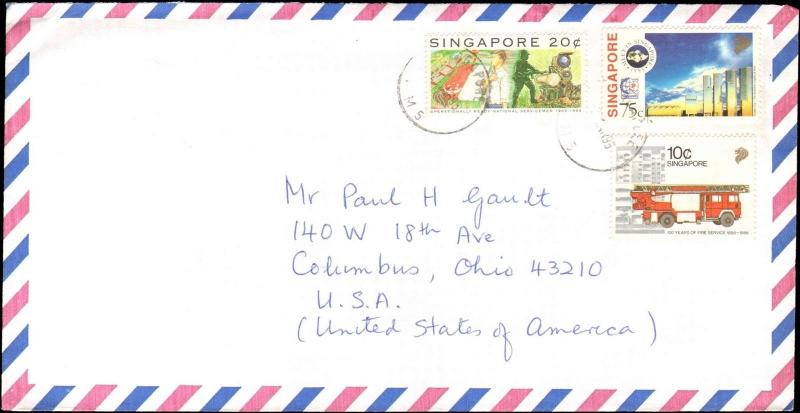 SINGAPORE 20¢
OPERATIONALLY READY NATIONAL SERVICEMEN
SINGAPORE
75c
10¢
SINGAPORE
100 YEARS OF FIRE SERVICE 1888-1988
Mr Paul H Gault
140 W 18th Ave
Columbus, Ohio 43210
U.S.A.
(United States of America)